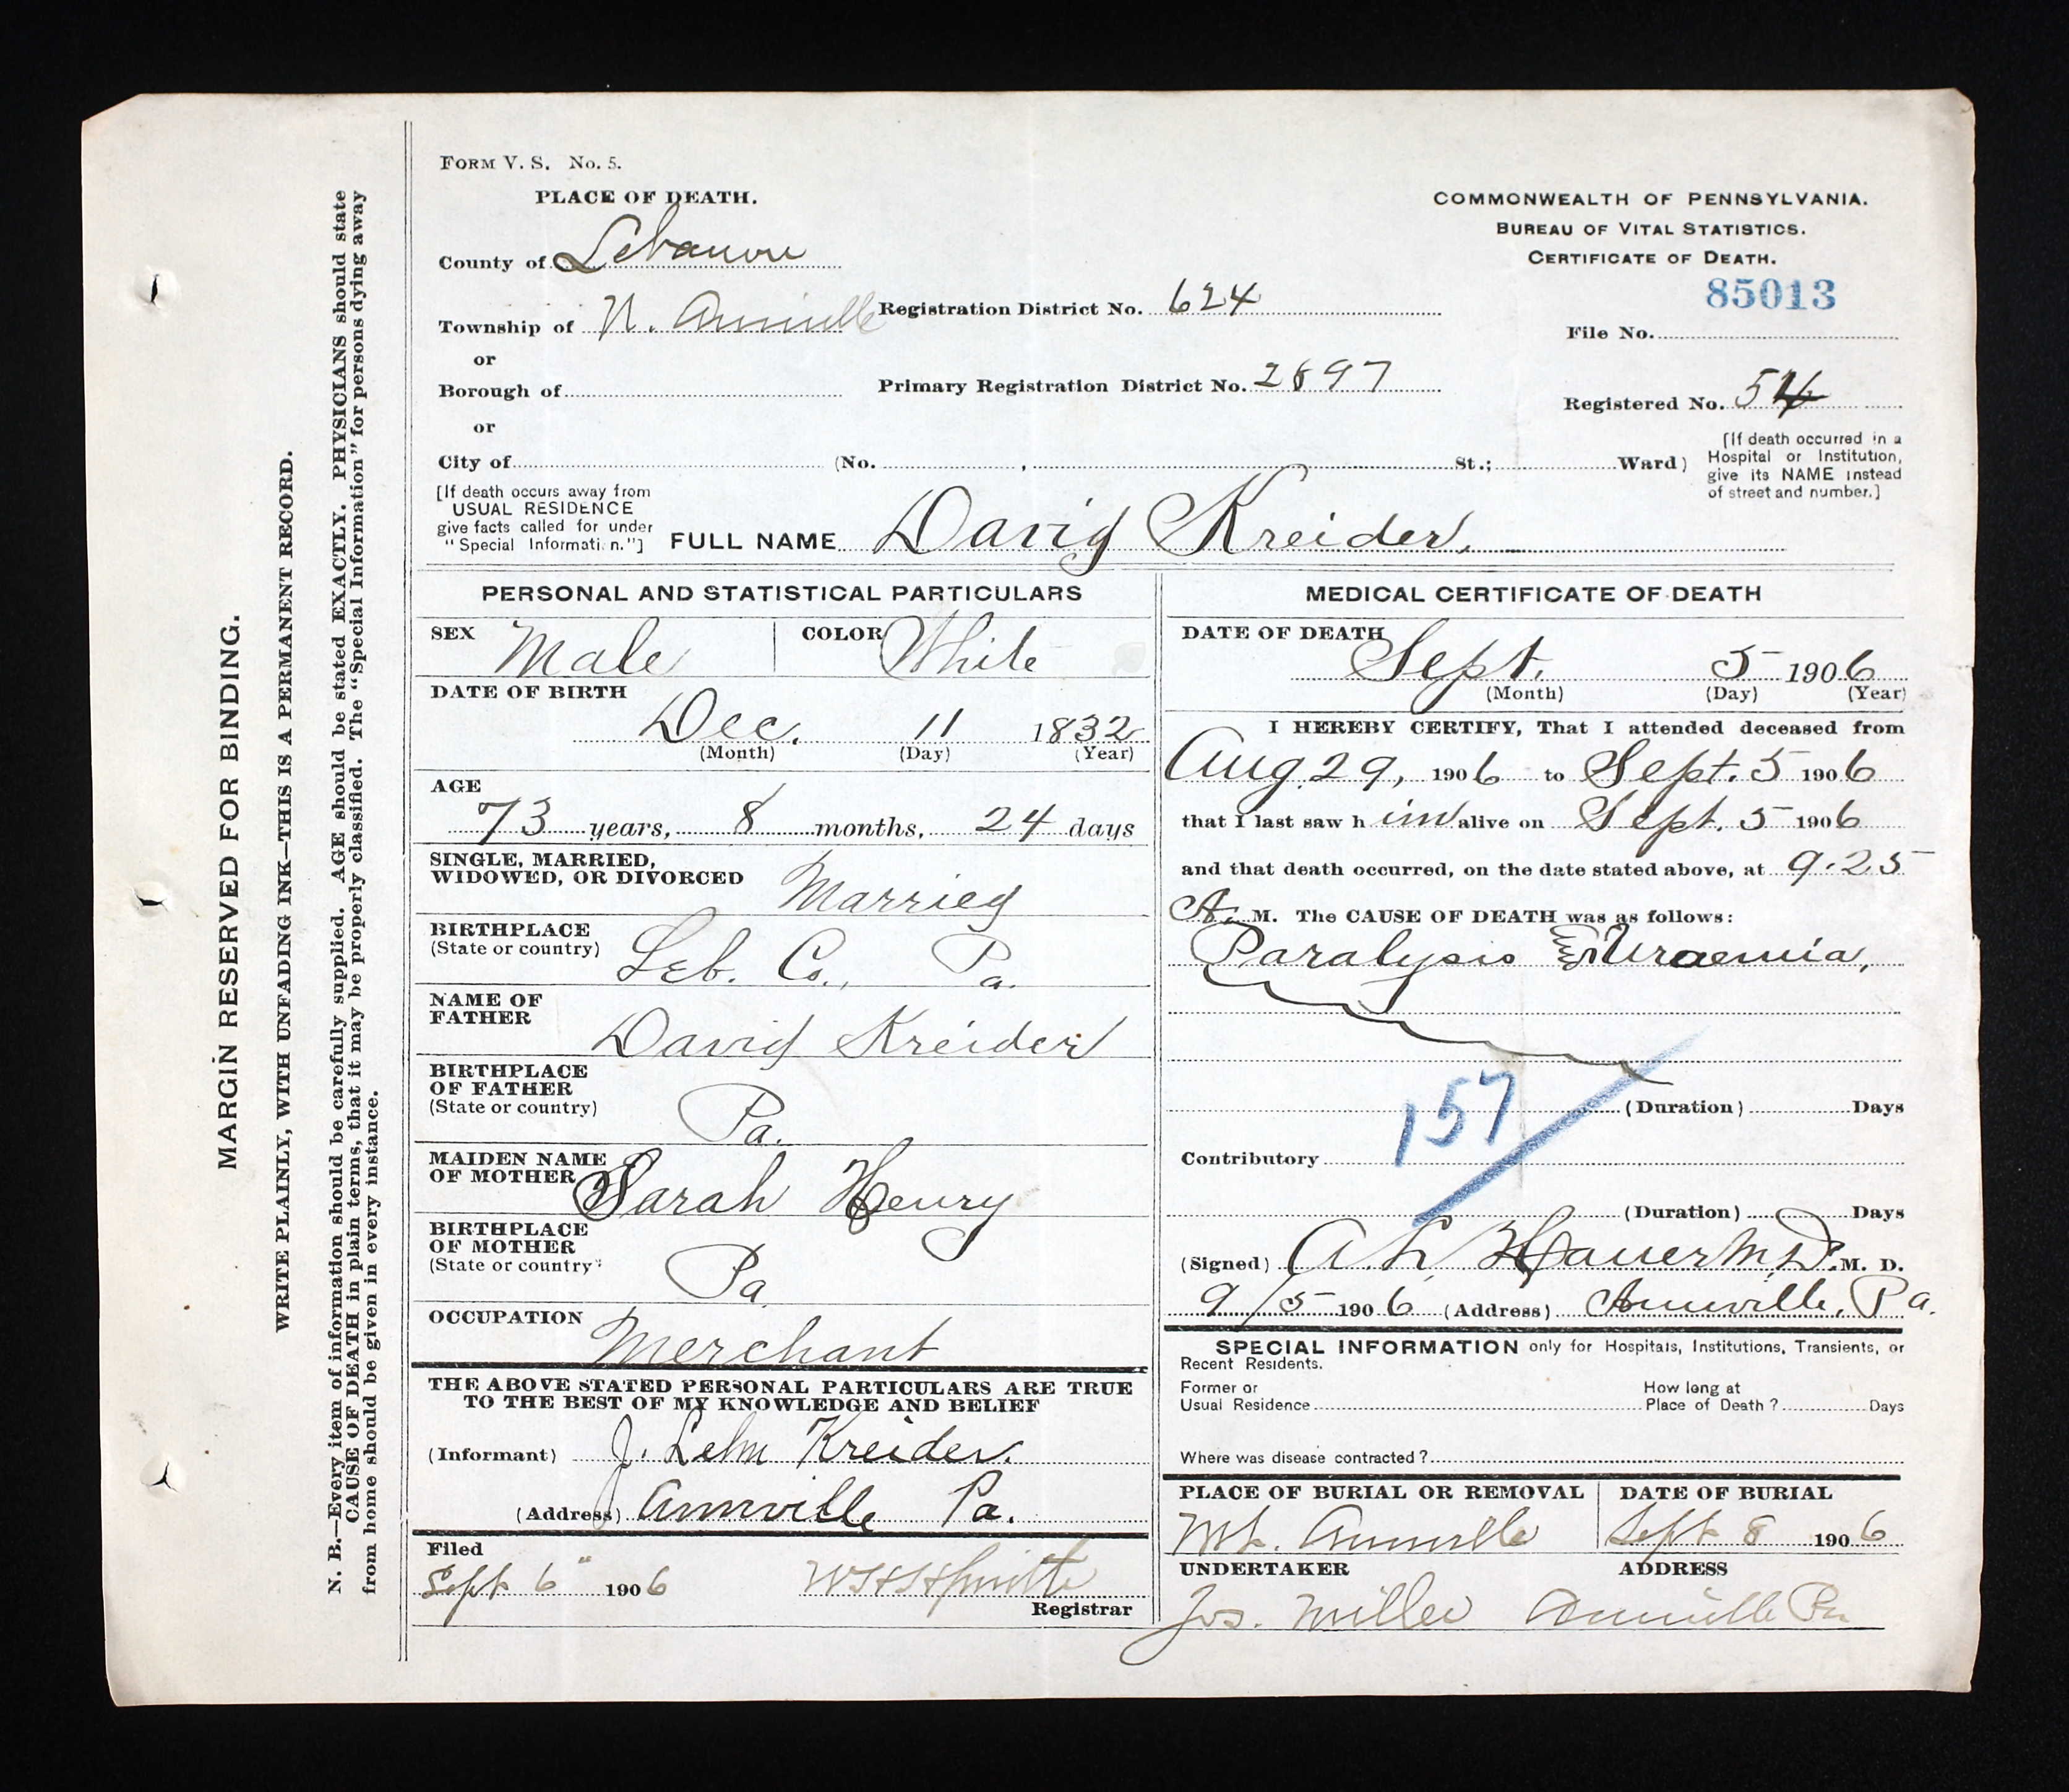 MARGIN RESERVED FOR BINDING.
WRITE PLAINLY, WITH UNFADING INK—THIS IS A PERMANENT RECORD.
N. B.—Every item of information should be carefully supplied. AGE should be stated EXACTLY. PHYSICIANS should state
CAUSE OF DEATH in plain terms, that it may be properly classified. The "Special Information" for persons dying away
from home should be given in every instance.
FORM V. S. No. 5.
PLACE OF DEATH.
County of Lebanon
Township of N. Annville
or
Borough of
or
City of (No. , St.; Ward)
Registration District No. 624
Primary Registration District No. 2897
COMMONWEALTH OF PENNSYLVANIA.
BUREAU OF VITAL STATISTICS.
CERTIFICATE OF DEATH.
85013
File No.
Registered No. 54
[If death occurred in a
Hospital or Institution,
give its NAME instead
of street and number.]
[If death occurs away from
USUAL RESIDENCE
give facts called for under
"Special Informati n."]
FULL NAME David Kreider.
PERSONAL AND STATISTICAL PARTICULARS
SEX Male COLOR White
DATE OF BIRTH
Dec. 11 1832
(Month) (Day) (Year)
AGE
73 years, 8 months, 24 days
SINGLE, MARRIED,
WIDOWED, OR DIVORCED Married
BIRTHPLACE
(State or country) Leb. Co., Pa.
NAME OF
FATHER David Kreider
BIRTHPLACE
OF FATHER
(State or country) Pa.
MAIDEN NAME
OF MOTHER Sarah Henry
BIRTHPLACE
OF MOTHER
(State or country Pa.
OCCUPATION
Merchant
THE ABOVE STATED PERSONAL PARTICULARS ARE TRUE
TO THE BEST OF MY KNOWLEDGE AND BELIEF
(Informant) J. Lehn Kreider.
(Address) Annville Pa.
Filed
Sept 6" 1906
Registrar
MEDICAL CERTIFICATE OF DEATH
DATE OF DEATH
Sept. 5 1906
(Month) (Day) (Year)
I HEREBY CERTIFY, That I attended deceased from
Aug. 29, 1906 to Sept. 5 1906
that I last saw h im alive on Sept. 5 1906
and that death occurred, on the date stated above, at 9.25
A. M. The CAUSE OF DEATH was as follows:
Paralysis Uraemia,
157
(Duration) Days
Contributory
(Duration) Days
(Signed) A. L. Hauer M.D. M. D.
9/5 1906 (Address) Annville, Pa.
SPECIAL INFORMATION only for Hospitals, Institutions, Transients, or
Recent Residents.
Former or How long at
Usual Residence Place of Death ? Days
Where was disease contracted ?
PLACE OF BURIAL OR REMOVAL DATE OF BURIAL
Mt. Annville Sept 8 1906
UNDERTAKER ADDRESS
Jos. Miller Annville Pa